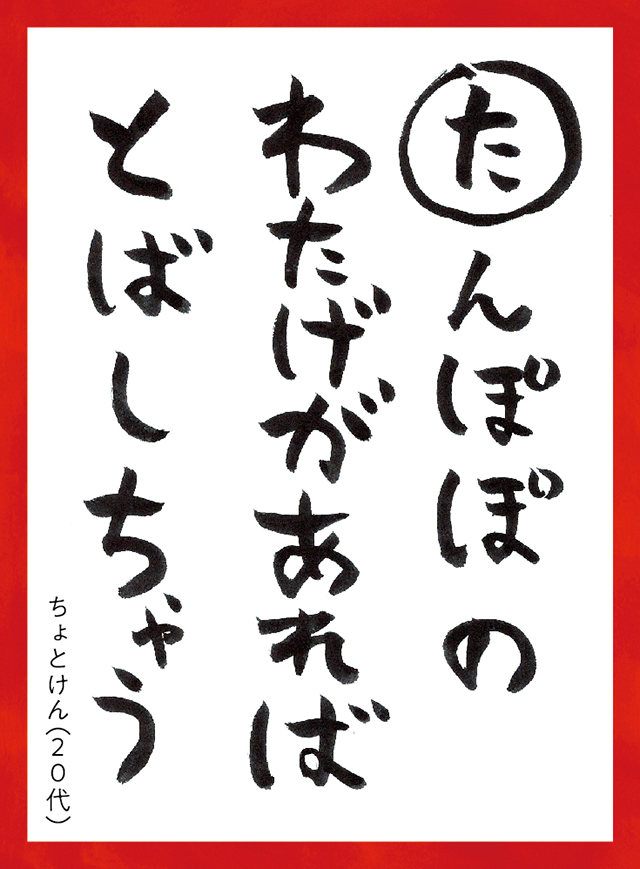 たんぽぽの
わたげがあれば
とばしちゃう
ちょとけん(20代)